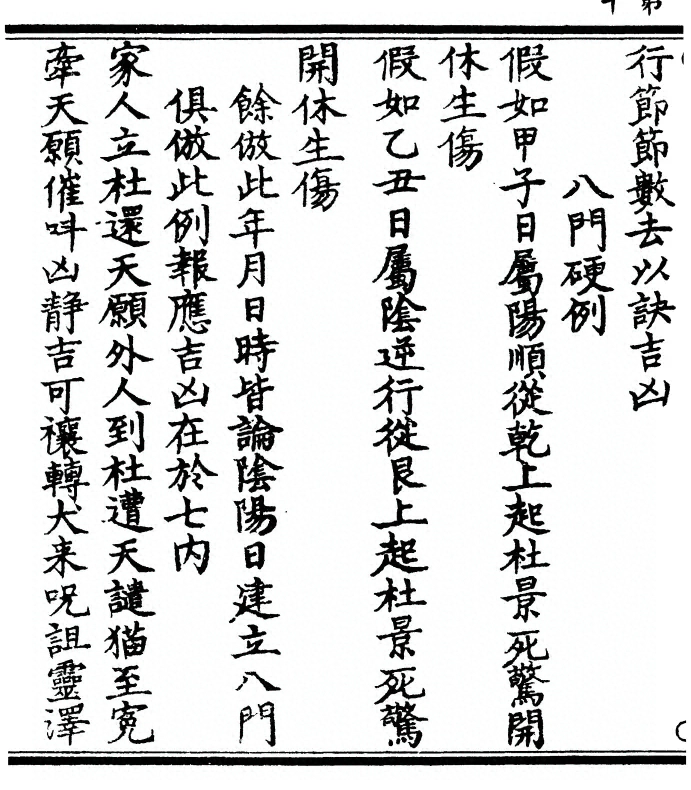 行節節數去以訣吉凶
八門硬例
假如甲子日屬陽順從乾上起杜景死驚開
休生傷
假如乙丑日屬陰逆行從艮上起杜景死驚
開休生傷
餘倣此年月日時皆論陰陽日建立八門
俱倣此例報應吉凶在於七内
家人立杜還天願外人到杜遭天譴猫至寃
牽天願催呌凶静吉可禳轉犬来呪詛靈澤